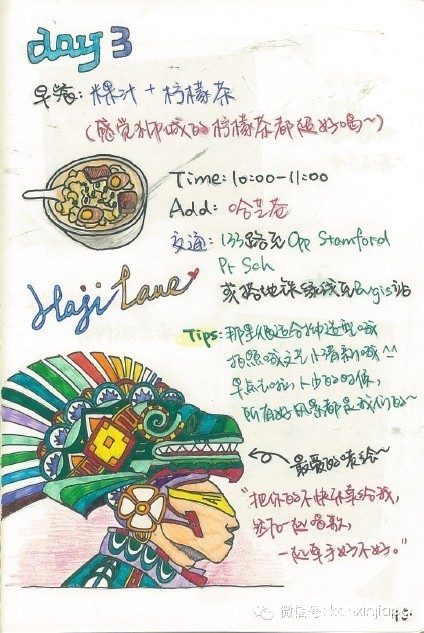 day 3
早餐: 粿汁 + 柠檬茶
(感觉狮城的柠檬茶都超好喝~)
Time: 10:00-11:00
Add: 哈芝巷
交通: 133路至Opp Stamford
Pr Sch
或搭地铁绿线至Bugis站
Haji Lane
Tips: 那里很适合拍造型哦
拍照哦文艺小清新哦^^
早点去啦人少的时候,
所有好风景都是我们的~
最爱的壁绘~
"把你的不快乐拿给我,
一起唱歌,
一起牵手好不好。"
微信号: